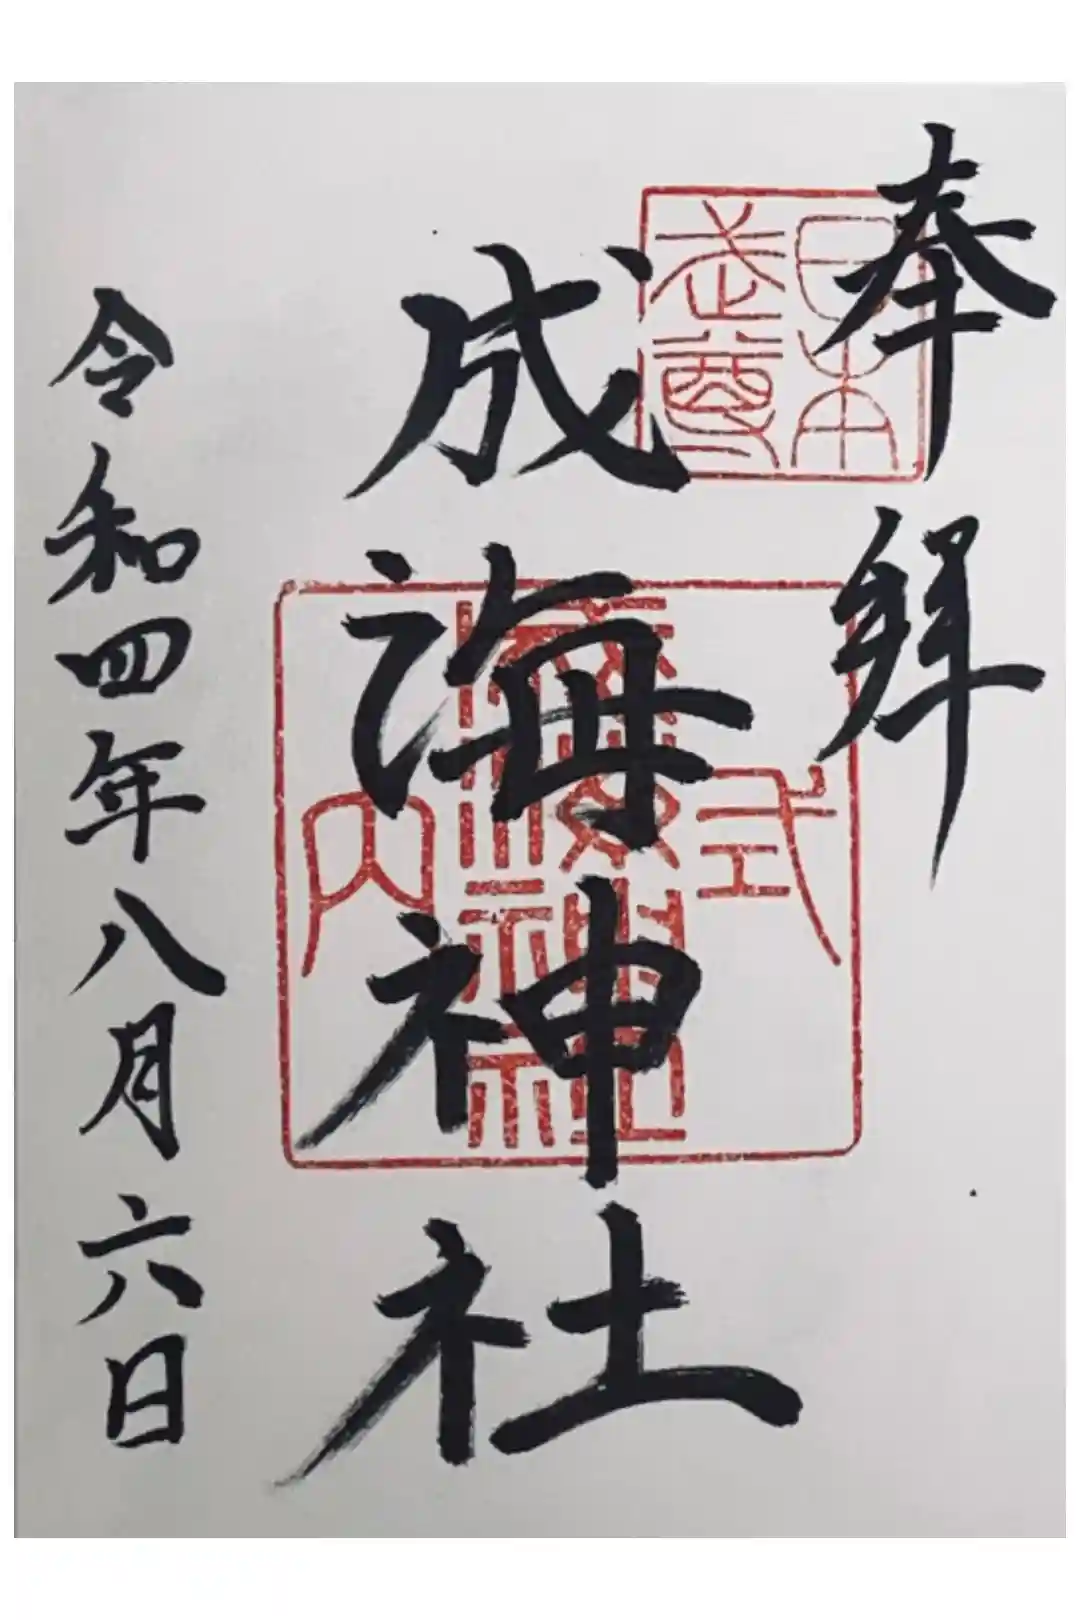 奉拝
日本
武尊
成海神社
式
成海神社
内
令和四年八月六日